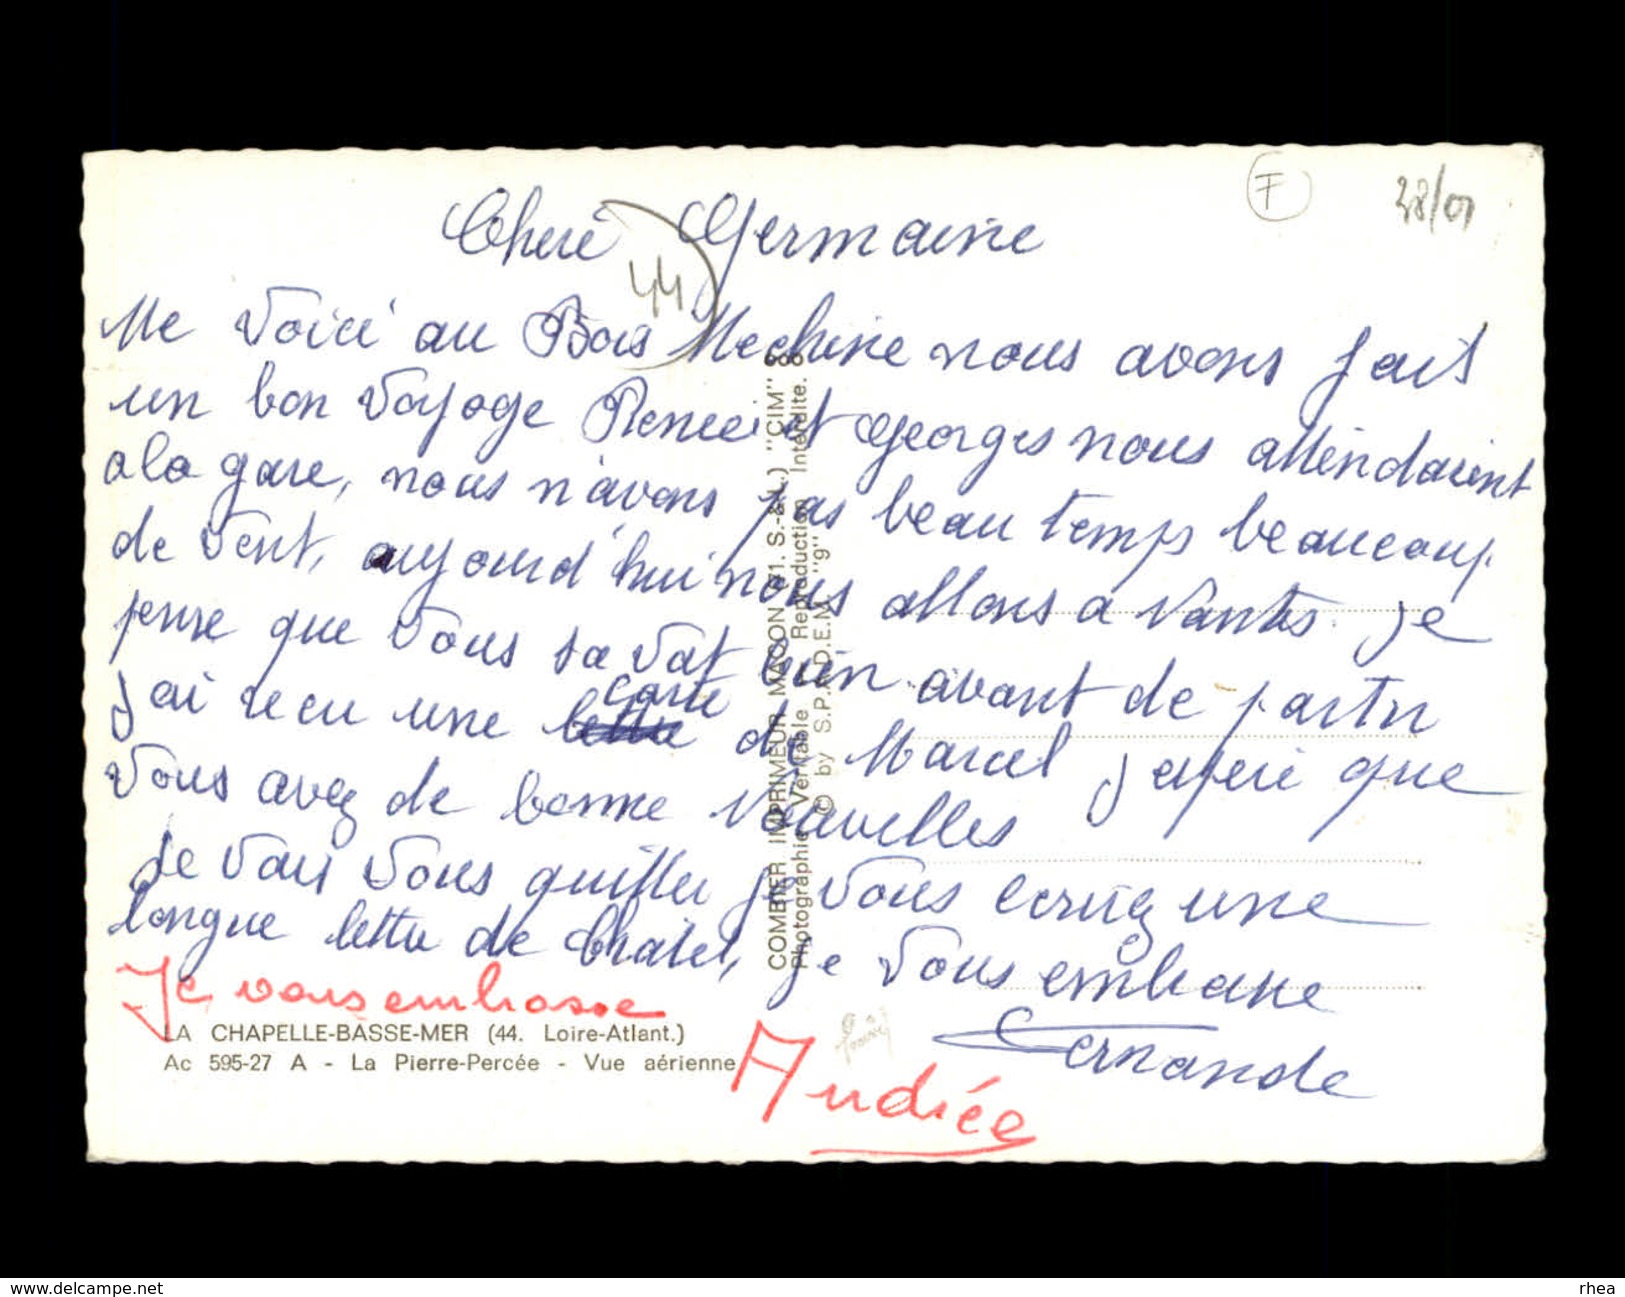 F
28/01
Cheré Germaine
44
Me Voici au Bois Mechine nous avons fait
un bon Voyage Renée et Georges nous attendaient
a la gare, nous n'avons pas beau temps beaucoup
de Vent, aujourd'hui nous allons a Nantes. je
pense que Vous sa vat bien avant de partir
J'ai recu une carte de Marcel j'espere que
Vous avez de bonne Nouvelles
Je Vais Vous quitter je Vous ecruez une
longue lettre de Chatel, je Vous embrasse
Fernande
Je vous embrasse
Andrée
LA CHAPELLE-BASSE-MER (44. Loire-Atlant.)
Ac 595-27 A - La Pierre-Percée - Vue aérienne
COMBIER IMPRIMEUR MACON (71. S.-&-L.) "CIM"
Photographie Véritable Reproduction Interdite.
© by S.P.A.D.E.M. "g"
www.delcampe.net
rhea